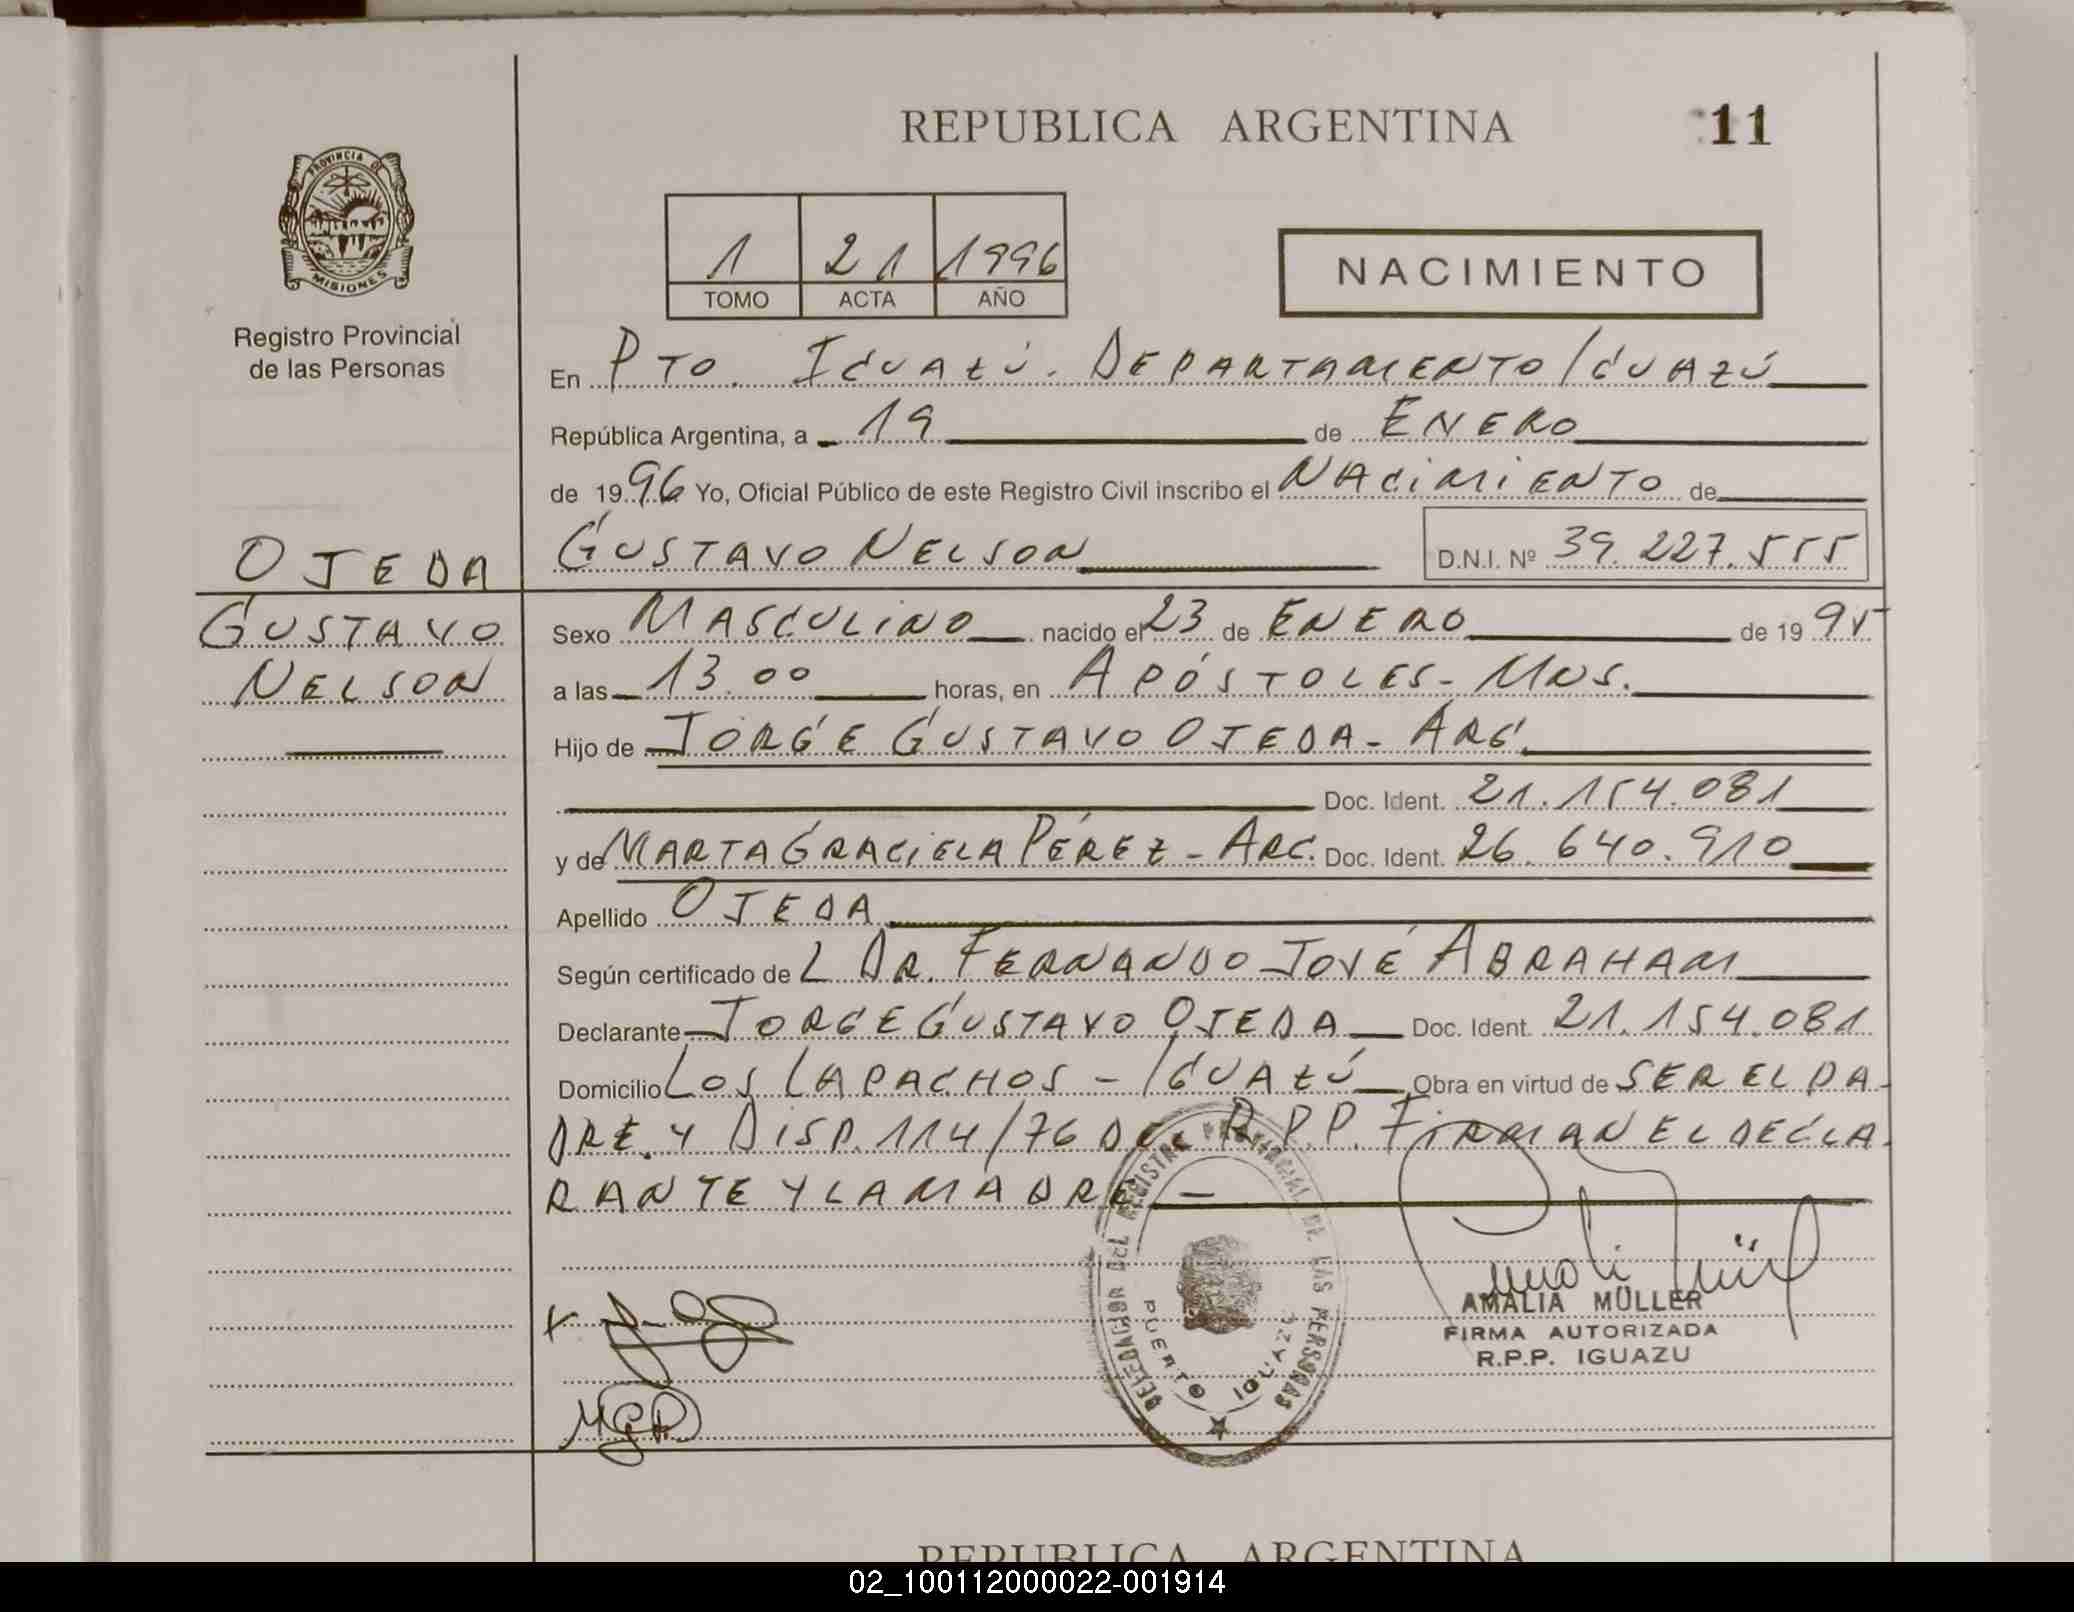 REPUBLICA ARGENTINA
11
PROVINCIA DE
MISIONES
Registro Provincial
de las Personas
1 21 1996
TOMO ACTA AÑO
NACIMIENTO
En PTO. IGUAZÚ. DEPARTAMENTO IGUAZÚ
República Argentina, a 19 de ENERO
de 1996 Yo, Oficial Público de este Registro Civil inscribo el NACIMIENTO de
GUSTAVO NELSON D.N.I. Nº 39.227.555
OJEDA
GUSTAVO
NELSON
Sexo MASCULINO nacido el 23 de ENERO de 1995
a las 13.00 horas, en APÓSTOLES - MNS.
Hijo de JORGE GUSTAVO OJEDA - ARG.
Doc. Ident. 21.154.081
y de MARTA GRACIELA PÉREZ - ARG. Doc. Ident. 26.640.910
Apellido OJEDA
Según certificado de L DR. FERNANDO JOSÉ ABRAHAM
Declarante JORGE GUSTAVO OJEDA Doc. Ident. 21.154.081
Domicilio LOS LAPACHOS - IGUAZÚ Obra en virtud de SER EL PA-
DRE. Y DISP. 114/76 DEL R.P.P. FIRMAN EL DECLA-
RANTE Y LA MADRE. -
DELEGACION DEL REGISTRO PROVINCIAL DE LAS PERSONAS
PUERTO IGUAZU
AMALIA MÜLLER
FIRMA AUTORIZADA
R.P.P. IGUAZU
REPUBLICA ARGENTINA
02_100112000022-001914